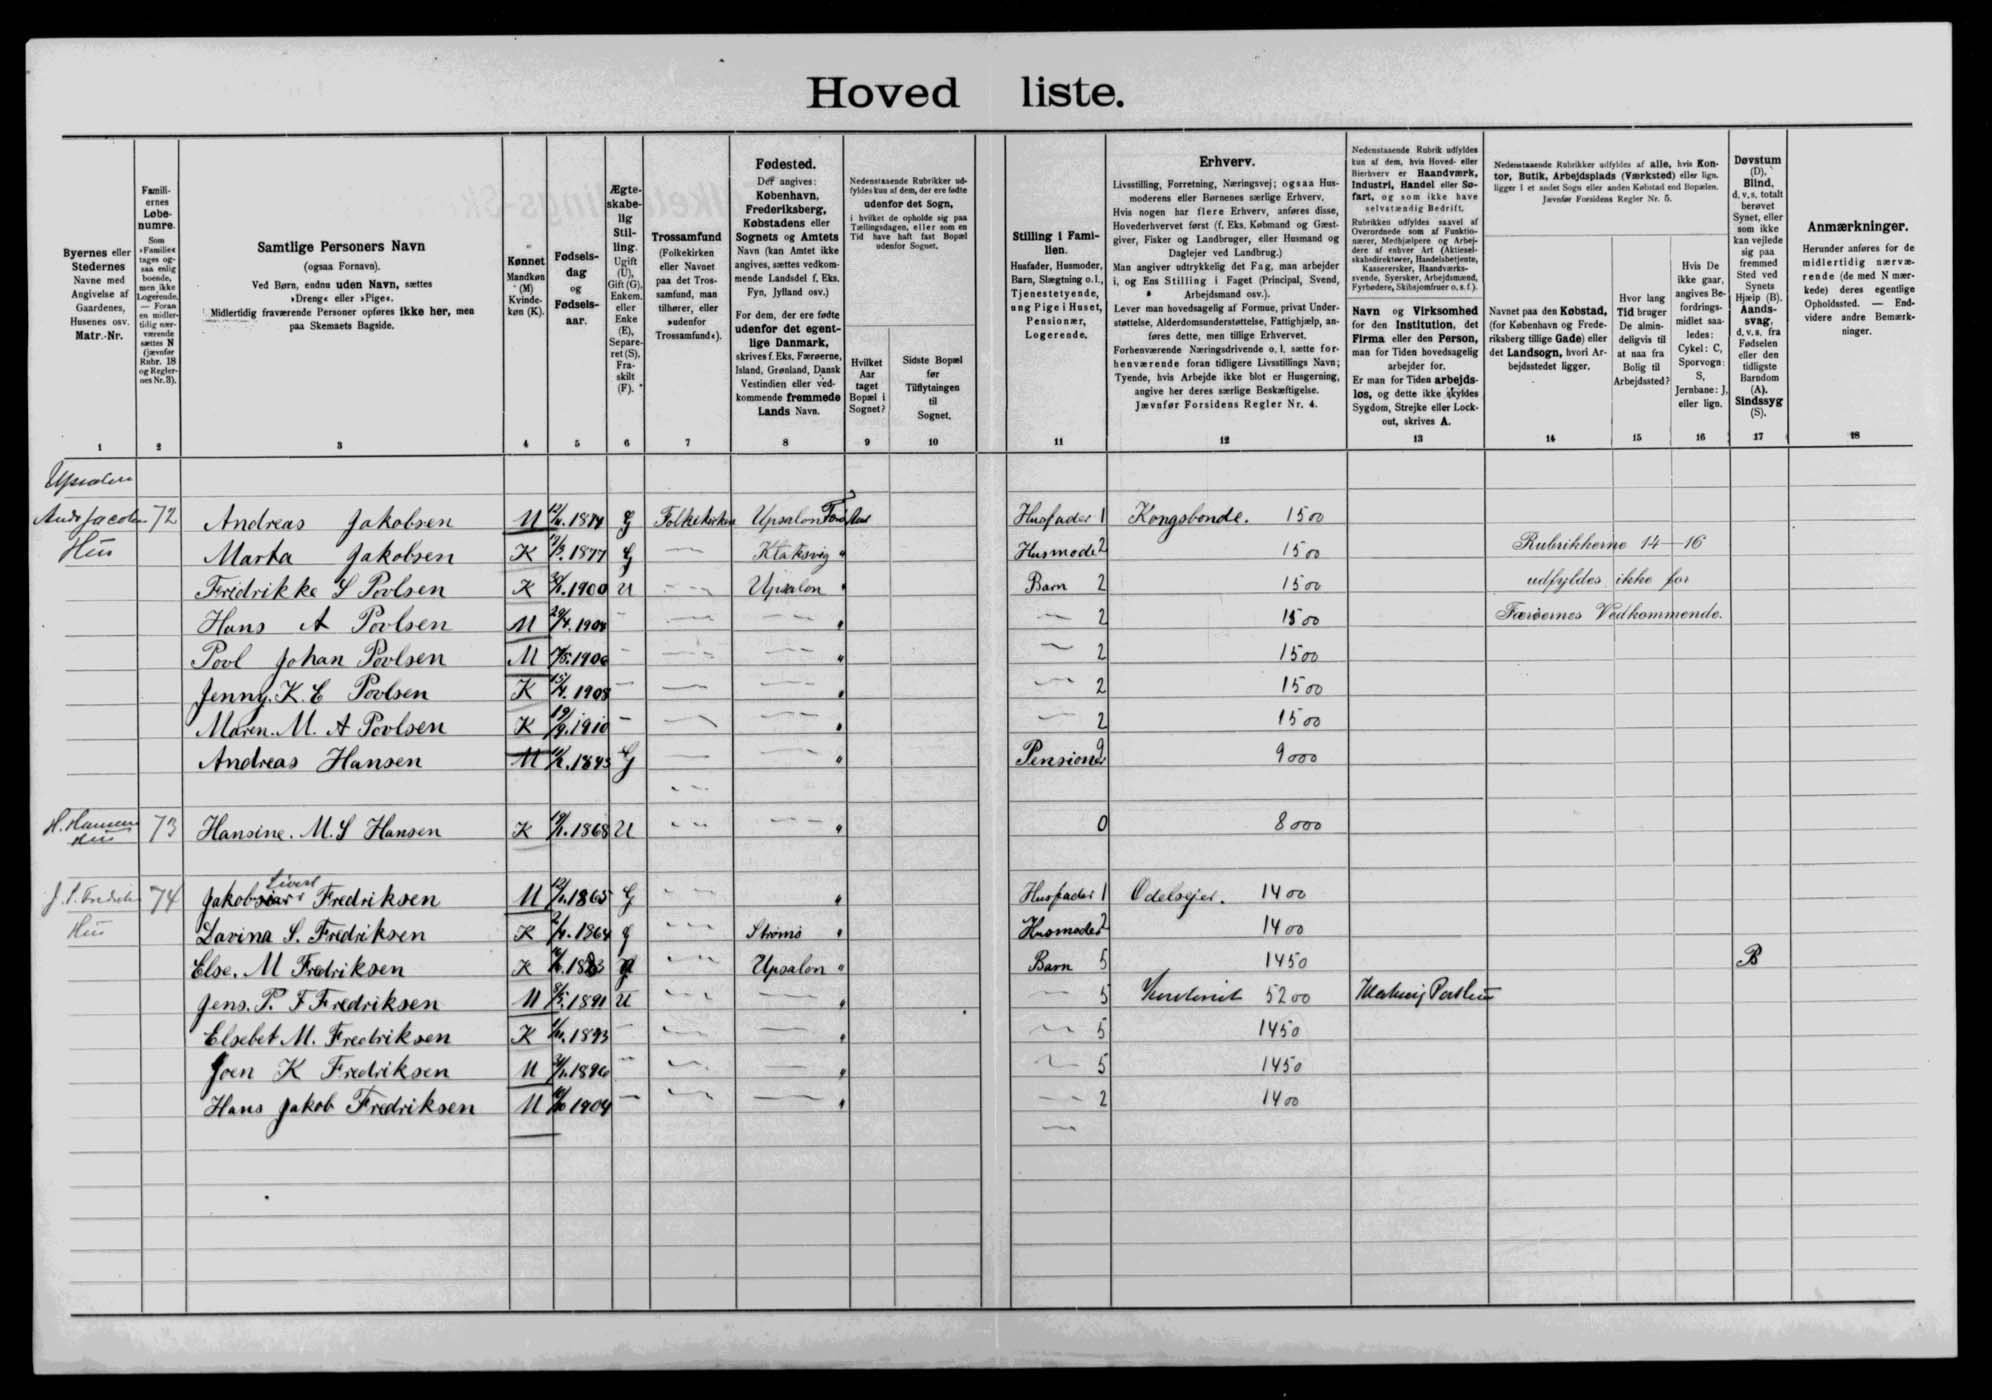 Hoved liste.
Byernes eller
Stedernes
Navne med
Angivelse af
Gaardenes,
Husenes osv.
Matr.-Nr.
1
Famili-
ernes
Løbe-
numre.
Som
»Familie«
tages og-
saa enlig
boende,
men ikke
Logerende.
— Foran
en midler-
tidig nær-
værende
sættes N
(jævnfør
Rubr. 18
og Regler-
nes Nr. 3).
2
Samtlige Personers Navn
(ogsaa Fornavn).
Ved Børn, endnu uden Navn, sættes
»Dreng« eller »Pige«.
Midlertidig fraværende Personer opføres ikke her, men
paa Skemaets Bagside.
3
Kønnet
Mandkøn
(M)
Kvinde-
køn (K).
4
Fødsels-
dag
og
Fødsels-
aar.
5
Ægte-
skabe-
lig
Stil-
ling.
Ugift
(U),
Gift (G),
Enkem.
eller
Enke
(E),
Separe-
ret (S),
Fra-
skilt
(F).
6
Trossamfund
(Folkekirken
eller Navnet
paa det Tros-
samfund, man
tilhører, eller
»udenfor
Trossamfund«).
7
Fødested.
Der angives:
København,
Frederiksberg,
Købstadens eller
Sognets og Amtets
Navn (kan Amtet ikke
angives, sættes vedkom-
mende Landsdel f. Eks.
Fyn, Jylland osv.)
For dem, der ere fødte
udenfor det egent-
lige Danmark,
skrives f. Eks. Færøerne,
Island, Grønland, Dansk
Vestindien eller ved-
kommende fremmede
Lands Navn.
8
Nedenstaaende Rubrikker ud-
fyldes kun af dem, der ere fødte
udenfor det Sogn,
i hvilket de opholde sig paa
Tællingsdagen, eller som en
Tid have haft fast Bopæl
udenfor Sognet.
Hvilket
Aar
taget
Bopæl i
Sognet?
9
Sidste Bopæl
før
Tilflytningen
til
Sognet.
10
Stilling i Fami-
lien.
Husfader, Husmoder,
Barn, Slægtning o. l.,
Tjenestetyende,
ung Pige i Huset,
Pensionær,
Logerende.
11
Erhverv.
Livsstilling, Forretning, Næringsvej; ogsaa Hus-
moderens eller Børnenes særlige Erhverv.
Hvis nogen har flere Erhverv, anføres disse,
Hovederhvervet først (f. Eks. Købmand og Gæst-
giver, Fisker og Landbruger, eller Husmand og
Daglejer ved Landbrug.)
Man angiver udtrykkelig det Fag, man arbejder
i, og Ens Stilling i Faget (Principal, Svend,
Arbejdsmand osv.).
Lever man hovedsagelig af Formue, privat Under-
støttelse, Alderdomsunderstøttelse, Fattighjælp, an-
føres dette, men tillige Erhvervet.
Forhenværende Næringsdrivende o. l. sætte for-
henværende foran tidligere Livsstillings Navn;
Tyende, hvis Arbejde ikke blot er Husgerning,
angive her deres særlige Beskæftigelse.
Jævnfør Forsidens Regler Nr. 4.
12
Nedenstaaende Rubrik udfyldes
kun af dem, hvis Hoved- eller
Bierhverv er Haandværk,
Industri, Handel eller Sø-
fart, og som ikke have
selvstændig Bedrift.
Rubrikken udfyldes saavel af
Overordnede som af Funktio-
nærer, Medhjælpere og Arbej-
dere af enhver Art (Aktiesel-
skabsdirektører, Handelsbetjente,
Kasserersker, Haandværks-
svende, Syersker, Arbejdsmænd,
Fyrbødere, Skibsjomfruer o. s. f.).
Navn og Virksomhed
for den Institution, det
Firma eller den Person,
man for Tiden hovedsagelig
arbejder for.
Er man for Tiden arbejds-
løs, og dette ikke skyldes
Sygdom, Strejke eller Lock-
out, skrives A.
13
Nedenstaaende Rubrikker udfyldes af alle, hvis Kon-
tor, Butik, Arbejdsplads (Værksted) eller lign.
ligger i et andet Sogn eller anden Købstad end Bopælen.
Jævnfør Forsidens Regler Nr. 5.
Navnet paa den Købstad,
(for København og Frede-
riksberg tillige Gade) eller
det Landsogn, hvori Ar-
bejdsstedet ligger.
14
Hvor lang
Tid bruger
De almin-
deligvis til
at naa fra
Bolig til
Arbejdssted?
15
Hvis De
ikke gaar,
angives Be-
fordrings-
midlet saa-
ledes:
Cykel: C,
Sporvogn:
S,
Jernbane: J,
eller lign.
16
Døvstum
(D),
Blind,
d. v. s. totalt
berøvet
Synet, eller
som ikke
kan vejlede
sig paa
fremmed
Sted ved
Synets
Hjælp (B).
Aands-
svag,
d. v. s. fra
Fødselen
eller den
tidligste
Barndom
(A).
Sindssyg
(S).
17
Anmærkninger.
Herunder anføres for de
midlertidig nærvæ-
rende (de med N mær-
kede) deres egentlige
Opholdssted. — End-
videre andre Bemærk-
ninger.
18
Upsalen
72 Andreas Jakobsen M 1874 G Folkekirken Upsalon Husfader 1 Kongsbonde. 1500
Hus Marta Jakobsen K 1877 G — Klaksvig " Husmode 2 1500 Rubrikkerne 14—16
Fridrikke S Povlsen K 1900 U — Upsalon " Barn 2 1500 udfyldes ikke for
Hans A Povlsen M 1904 — — — " — 2 1500 Færøernes Vedkommende.
Povl Johan Povlsen M 1906 — — — " — 2 1500
Jenny. K. E Povlsen K 1908 — — — " — 2 1500
Maren. M. A Povlsen K 19/9.1910 — — — " — 2 1500
Andreas Hansen M 1845 G — — " Pensioner 9 9000
H. Hansen Hus 73 Hansine. M. S Hansen K 1868 U — — " 0 8000
74 Jakob Sivert Fredriksen M 1865 G — " Husfader 1 Odelsejer. 1400
Hus Lavina S. Fredriksen K 1864 g — Strømø " Husmoder 2 1400
Else. M Fredriksen K — Upsalon " Barn 5 1450 B
Jens. P. F Fredriksen M 1891 U — — " — 5 5200
Elsebet M. Fredriksen K 1893 — — — " — 5 1450
Joen K Fredriksen M 1896 — — — " — 5 1450
Hans Jakob Fredriksen M 1904 — — — " — 2 1400